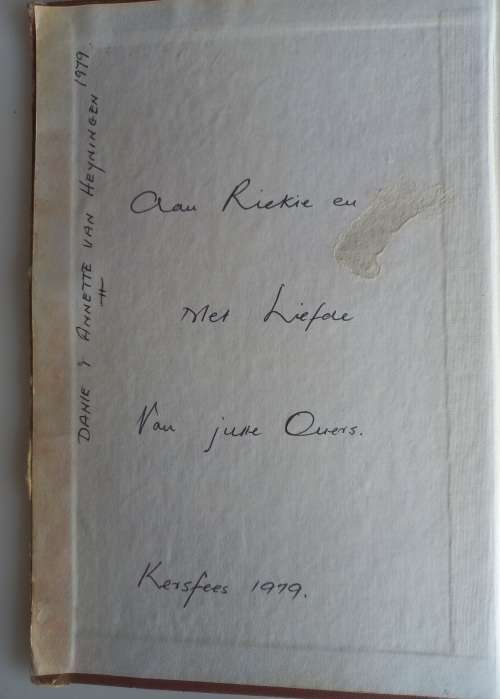 Aan Riekie en
Met Liefde
Van julle Ouers.
Kersfees 1979.
DANIE & ANNETTE VAN HEYNINGEN 1979.